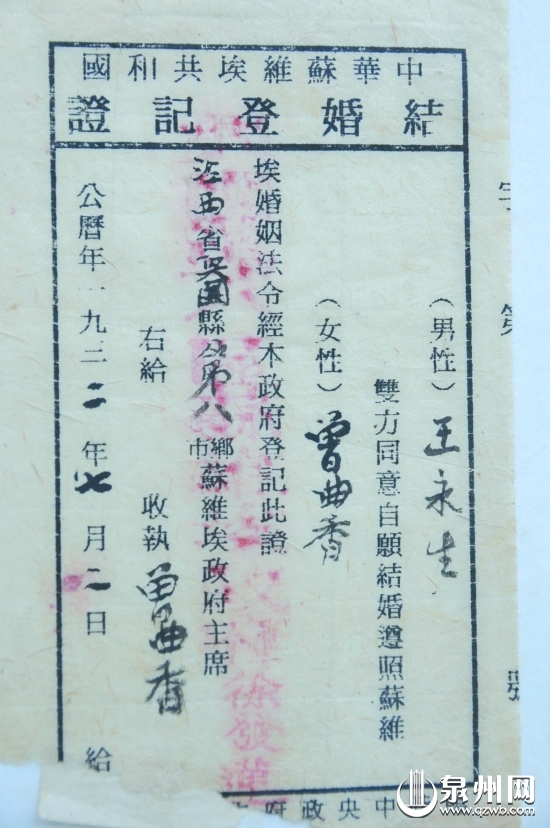 中華蘇維埃共和國
結婚登記證
字第 號
（男性）王永生
雙方同意自願結婚遵照蘇維
（女性）曾曲香
埃婚姻法令經本政府登記此證
江西省興國縣 第八鄉市蘇維埃政府主席
右給 收執 曾曲香
公曆年一九三二年七月二日 給
中央政府
泉州网
www.qzwb.com